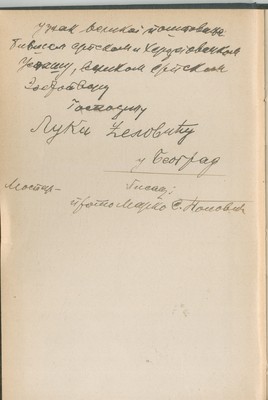 у знак великог поштовања
српском и Херцеговачком
великом српском
Добротвору
Господину
Луки Ћеловићу
у Београд
Мостар - Писац:
прото Марко С. Поповић